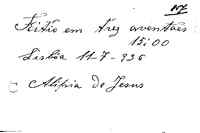 Feitio em trez aventaes
15:00
Lisbôa 11-7-936
Alipia de Jesus